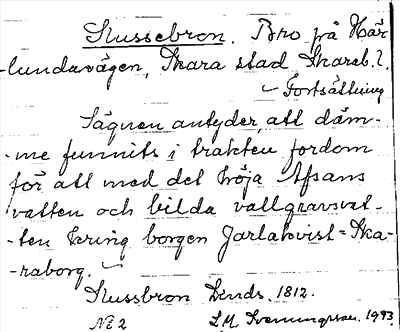 Slussebron. Bro på Här-
-lundavägen, Skara stad Skarab. l.
Fortsättning
Sägnen antyder, att däm-
-me funnits i trakten fordom
för att med det höja Afsans
vatten och bilda vallgravsvat-
-ten kring borgen Jarlakvist = Ska-
-raborg.
Slussbron Linds. 1812.
No 2 L.M. Svenungsson. 1943.